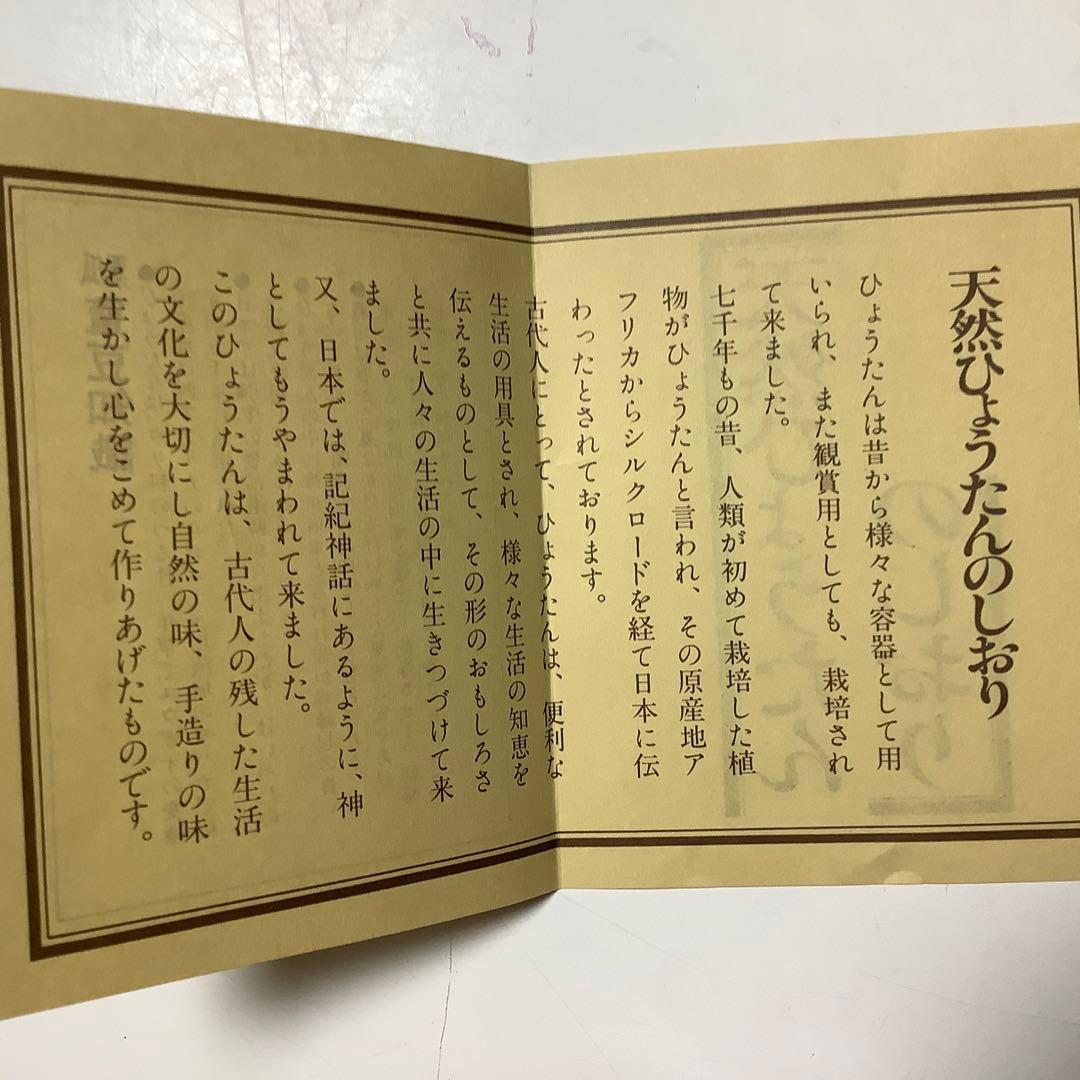 天然ひょうたんのしおり
ひょうたんは昔から様々な容器として用
いられ、また観賞用としても、栽培され
て来ました。
七千年もの昔、人類が初めて栽培した植
物がひょうたんと言われ、その原産地ア
フリカからシルクロードを経て日本に伝
わったとされております。
古代人にとって、ひょうたんは、便利な
生活の用具とされ、様々な生活の知恵を
伝えるものとして、その形のおもしろさ
と共に人々の生活の中に生きつづけて来
ました。
又、日本では、記紀神話にあるように、神
としてもうやまわれて来ました。
このひょうたんは、古代人の残した生活
の文化を大切にし自然の味、手造りの味
を生かし心をこめて作りあげたものです。